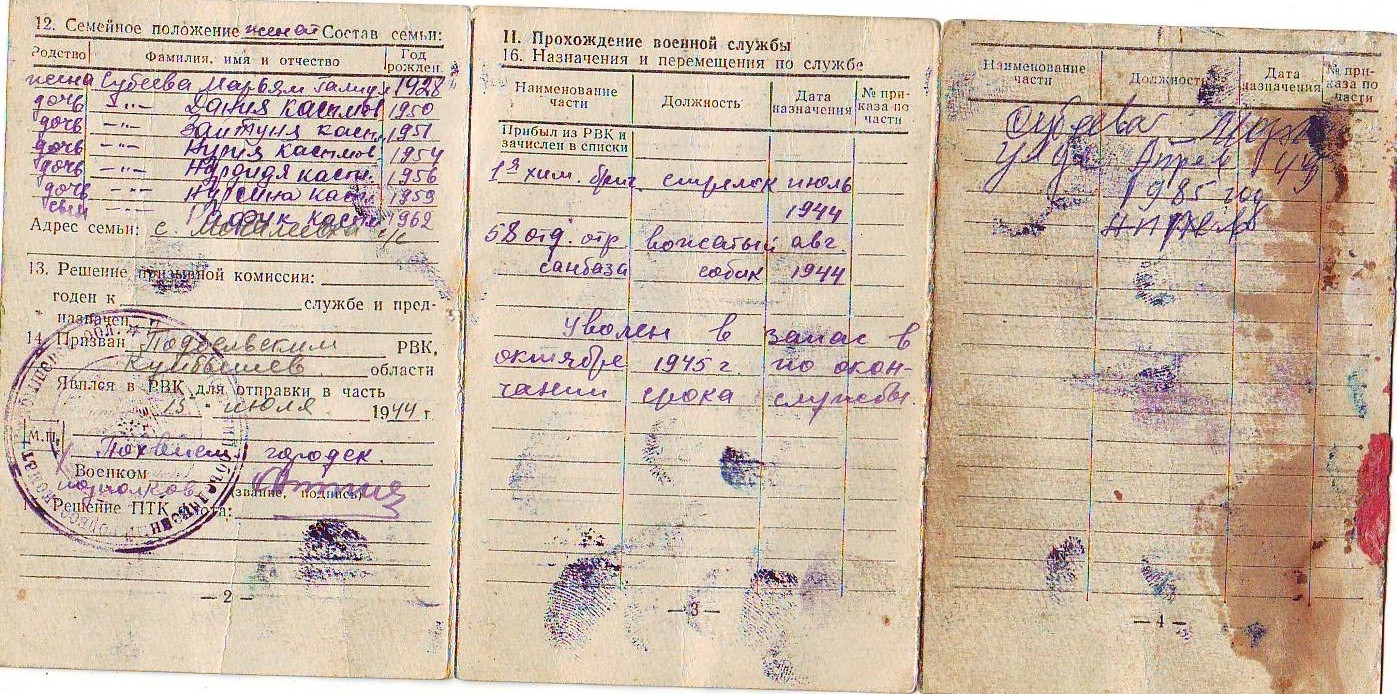 12. Семейное положение женат Состав семьи:
Родство Фамилия, имя и отчество Год рожден.
жена Субеева Марьям 1928
дочь -"- Дания Касимов 1950
дочь -"- Зайтуня Касим 1951
дочь -"- Нурия Касимов 1954
дочь -"- Касим. 1956
дочь -"- Касим 1959
сын -"- Касим 1962
Адрес семьи: с.
13. Решение призывной комиссии:
годен к службе и пред-
назначен
14. Призван Подбельским РВК,
Куйбышев области
Явился в РВК для отправки в часть
15 - июля 1944 г.
М.П.
городск.
Военком
подполков. (звание, подпись)
Решение ПТК
— 2 —
II. Прохождение военной службы
16. Назначения и перемещения по службе
Наименование части Должность Дата назначения № при-каза по части
Прибыл из РВК и
зачислен в списки
1я хим. бриг стрелок июль
1944
58 отд. отр вожатый авг.
санбаза собак 1944
Уволен в запас в
октябре 1945 г. по окон-
чании срока службы.
—3—
Наименование части Должность Дата назначения № при-каза по части
Субеева
Апрел 49
1985 год
Апрель
—4—